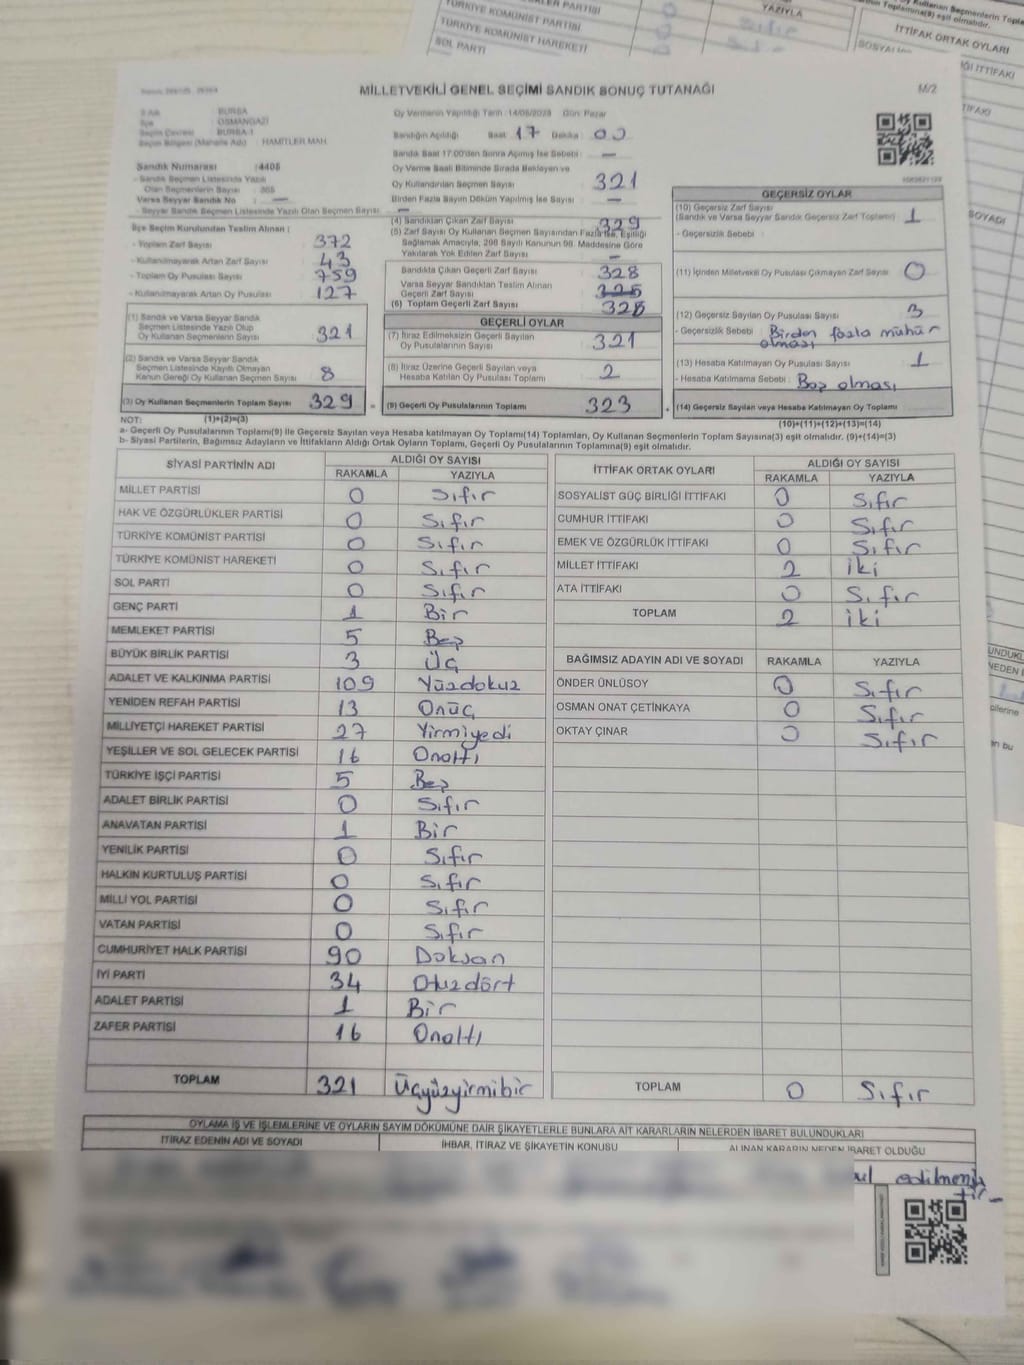 TÜRKİYE KOMÜNİST PARTİSİ
TÜRKİYE KOMÜNİST HAREKETİ
SOL PARTİ
YAZIYLA
İTTİFAK ORTAK OYLARI
MİLLETVEKİLİ GENEL SEÇİMİ SANDIK SONUÇ TUTANAĞI M/2
BURSA
OSMANGAZİ
BURSA-1
HAMİTLER MAH.
Sandık Numarası :4405
- Sandık Seçmen Listesinde Yazılı
Olan Seçmenlerin Sayısı
Varsa Seyyar Sandık No —
- Seyyar Sandık Seçmen Listesinde Yazılı Olan Seçmen Sayısı —
İlçe Seçim Kurulundan Teslim Alınan :
- Toplam Zarf Sayısı 372
- Kullanılmayarak Artan Zarf Sayısı 43
- Toplam Oy Pusulası Sayısı 759
- Kullanılmayarak Artan Oy Pusulası 127
(1) Sandık ve Varsa Seyyar Sandık
Seçmen Listesinde Yazılı Olup
Oy Kullanan Seçmenlerin Sayısı 321
(2) Sandık ve Varsa Seyyar Sandık
Seçmen Listesinde Kayıtlı Olmayan
Kanun Gereği Oy Kullanan Seçmen Sayısı 8
(3) Oy Kullanan Seçmenlerin Toplam Sayısı 329
Oy Vermenin Yapıldığı Tarih :14/05/2023 Gün: Pazar
Sandığın Açıldığı Saat 17 Dakika 00
Sandık Saat 17:00'den Sonra Açılmış İse Sebebi —
Oy Verme Saati Bitiminde Sırada Bekleyen ve
Oy Kullandırılan Seçmen Sayısı 321
Birden Fazla Sayım Döküm Yapılmış İse Sayısı —
(4) Sandıktan Çıkan Zarf Sayısı 329
(5) Zarf Sayısı Oy Kullanan Seçmen Sayısından Fazla İse, Eşitliği
Sağlamak Amacıyla, 298 Sayılı Kanunun 98. Maddesine Göre
Yakılarak Yok Edilen Zarf Sayısı —
Sandıkta Çıkan Geçerli Zarf Sayısı 328
Varsa Seyyar Sandıktan Teslim Alınan
Geçerli Zarf Sayısı
(6) Toplam Geçerli Zarf Sayısı 328
GEÇERLİ OYLAR
(7) İtiraz Edilmeksizin Geçerli Sayılan
Oy Pusulalarının Sayısı 321
(8) İtiraz Üzerine Geçerli Sayılan veya
Hesaba Katılan Oy Pusulası Toplamı 2
(9) Geçerli Oy Pusulalarının Toplamı 323
GEÇERSİZ OYLAR
(10) Geçersiz Zarf Sayısı
(Sandık ve Varsa Seyyar Sandık Geçersiz Zarf Toplamı) 1
- Geçersizlik Sebebi :
(11) İçinden Milletvekili Oy Pusulası Çıkmayan Zarf Sayısı 0
(12) Geçersiz Sayılan Oy Pusulası Sayısı 3
- Geçersizlik Sebebi : Birden fazla mühür
olması
(13) Hesaba Katılmayan Oy Pusulası Sayısı 1
- Hesaba Katılmama Sebebi : Boş olması
(14) Geçersiz Sayılan veya Hesaba Katılmayan Oy Toplamı
NOT: (1)+(2)=(3) (10)+(11)+(12)+(13)=(14)
a- Geçerli Oy Pusulalarının Toplamı(9) ile Geçersiz Sayılan veya Hesaba katılmayan Oy Toplamı(14) Toplamları, Oy Kullanan Seçmenlerin Toplam Sayısına(3) eşit olmalıdır. (9)+(14)=(3)
b- Siyasi Partilerin, Bağımsız Adayların ve İttifakların Aldığı Ortak Oyların Toplamı, Geçerli Oy Pusulalarının Toplamına(9) eşit olmalıdır.
SİYASİ PARTİNİN ADI ALDIĞI OY SAYISI
RAKAMLA YAZIYLA
MİLLET PARTİSİ 0 Sıfır
HAK VE ÖZGÜRLÜKLER PARTİSİ 0 Sıfır
TÜRKİYE KOMÜNİST PARTİSİ 0 Sıfır
TÜRKİYE KOMÜNİST HAREKETİ 0 Sıfır
SOL PARTİ 0 Sıfır
GENÇ PARTİ 1 Bir
MEMLEKET PARTİSİ 5 Beş
BÜYÜK BİRLİK PARTİSİ 3 Üç
ADALET VE KALKINMA PARTİSİ 109 Yüzdokuz
YENİDEN REFAH PARTİSİ 13 Onüç
MİLLİYETÇİ HAREKET PARTİSİ 27 Yirmiyedi
YEŞİLLER VE SOL GELECEK PARTİSİ 16 Onaltı
TÜRKİYE İŞÇİ PARTİSİ 5 Beş
ADALET BİRLİK PARTİSİ 0 Sıfır
ANAVATAN PARTİSİ 1 Bir
YENİLİK PARTİSİ 0 Sıfır
HALKIN KURTULUŞ PARTİSİ 0 Sıfır
MİLLİ YOL PARTİSİ 0 Sıfır
VATAN PARTİSİ 0 Sıfır
CUMHURİYET HALK PARTİSİ 90 Doksan
İYİ PARTİ 34 Otuzdört
ADALET PARTİSİ 1 Bir
ZAFER PARTİSİ 16 Onaltı
TOPLAM 321 Üçyüzyirmibir
İTTİFAK ORTAK OYLARI ALDIĞI OY SAYISI
RAKAMLA YAZIYLA
SOSYALİST GÜÇ BİRLİĞİ İTTİFAKI 0 Sıfır
CUMHUR İTTİFAKI 0 Sıfır
EMEK VE ÖZGÜRLÜK İTTİFAKI 0 Sıfır
MİLLET İTTİFAKI 2 iki
ATA İTTİFAKI 0 Sıfır
TOPLAM 2 iki
BAĞIMSIZ ADAYIN ADI VE SOYADI RAKAMLA YAZIYLA
ÖNDER ÜNLÜSOY 0 Sıfır
OSMAN ONAT ÇETİNKAYA 0 Sıfır
OKTAY ÇINAR 0 Sıfır
TOPLAM 0 Sıfır
OYLAMA İŞ VE İŞLEMLERİNE VE OYLARIN SAYIM DÖKÜMÜNE DAİR ŞİKAYETLERLE BUNLARA AİT KARARLARIN NELERDEN İBARET BULUNDUKLARI
İTİRAZ EDENİN ADI VE SOYADI İHBAR, İTİRAZ VE ŞİKAYETİN KONUSU ALINAN KARARIN NEDEN İBARET OLDUĞU
edilmemiş
tir-